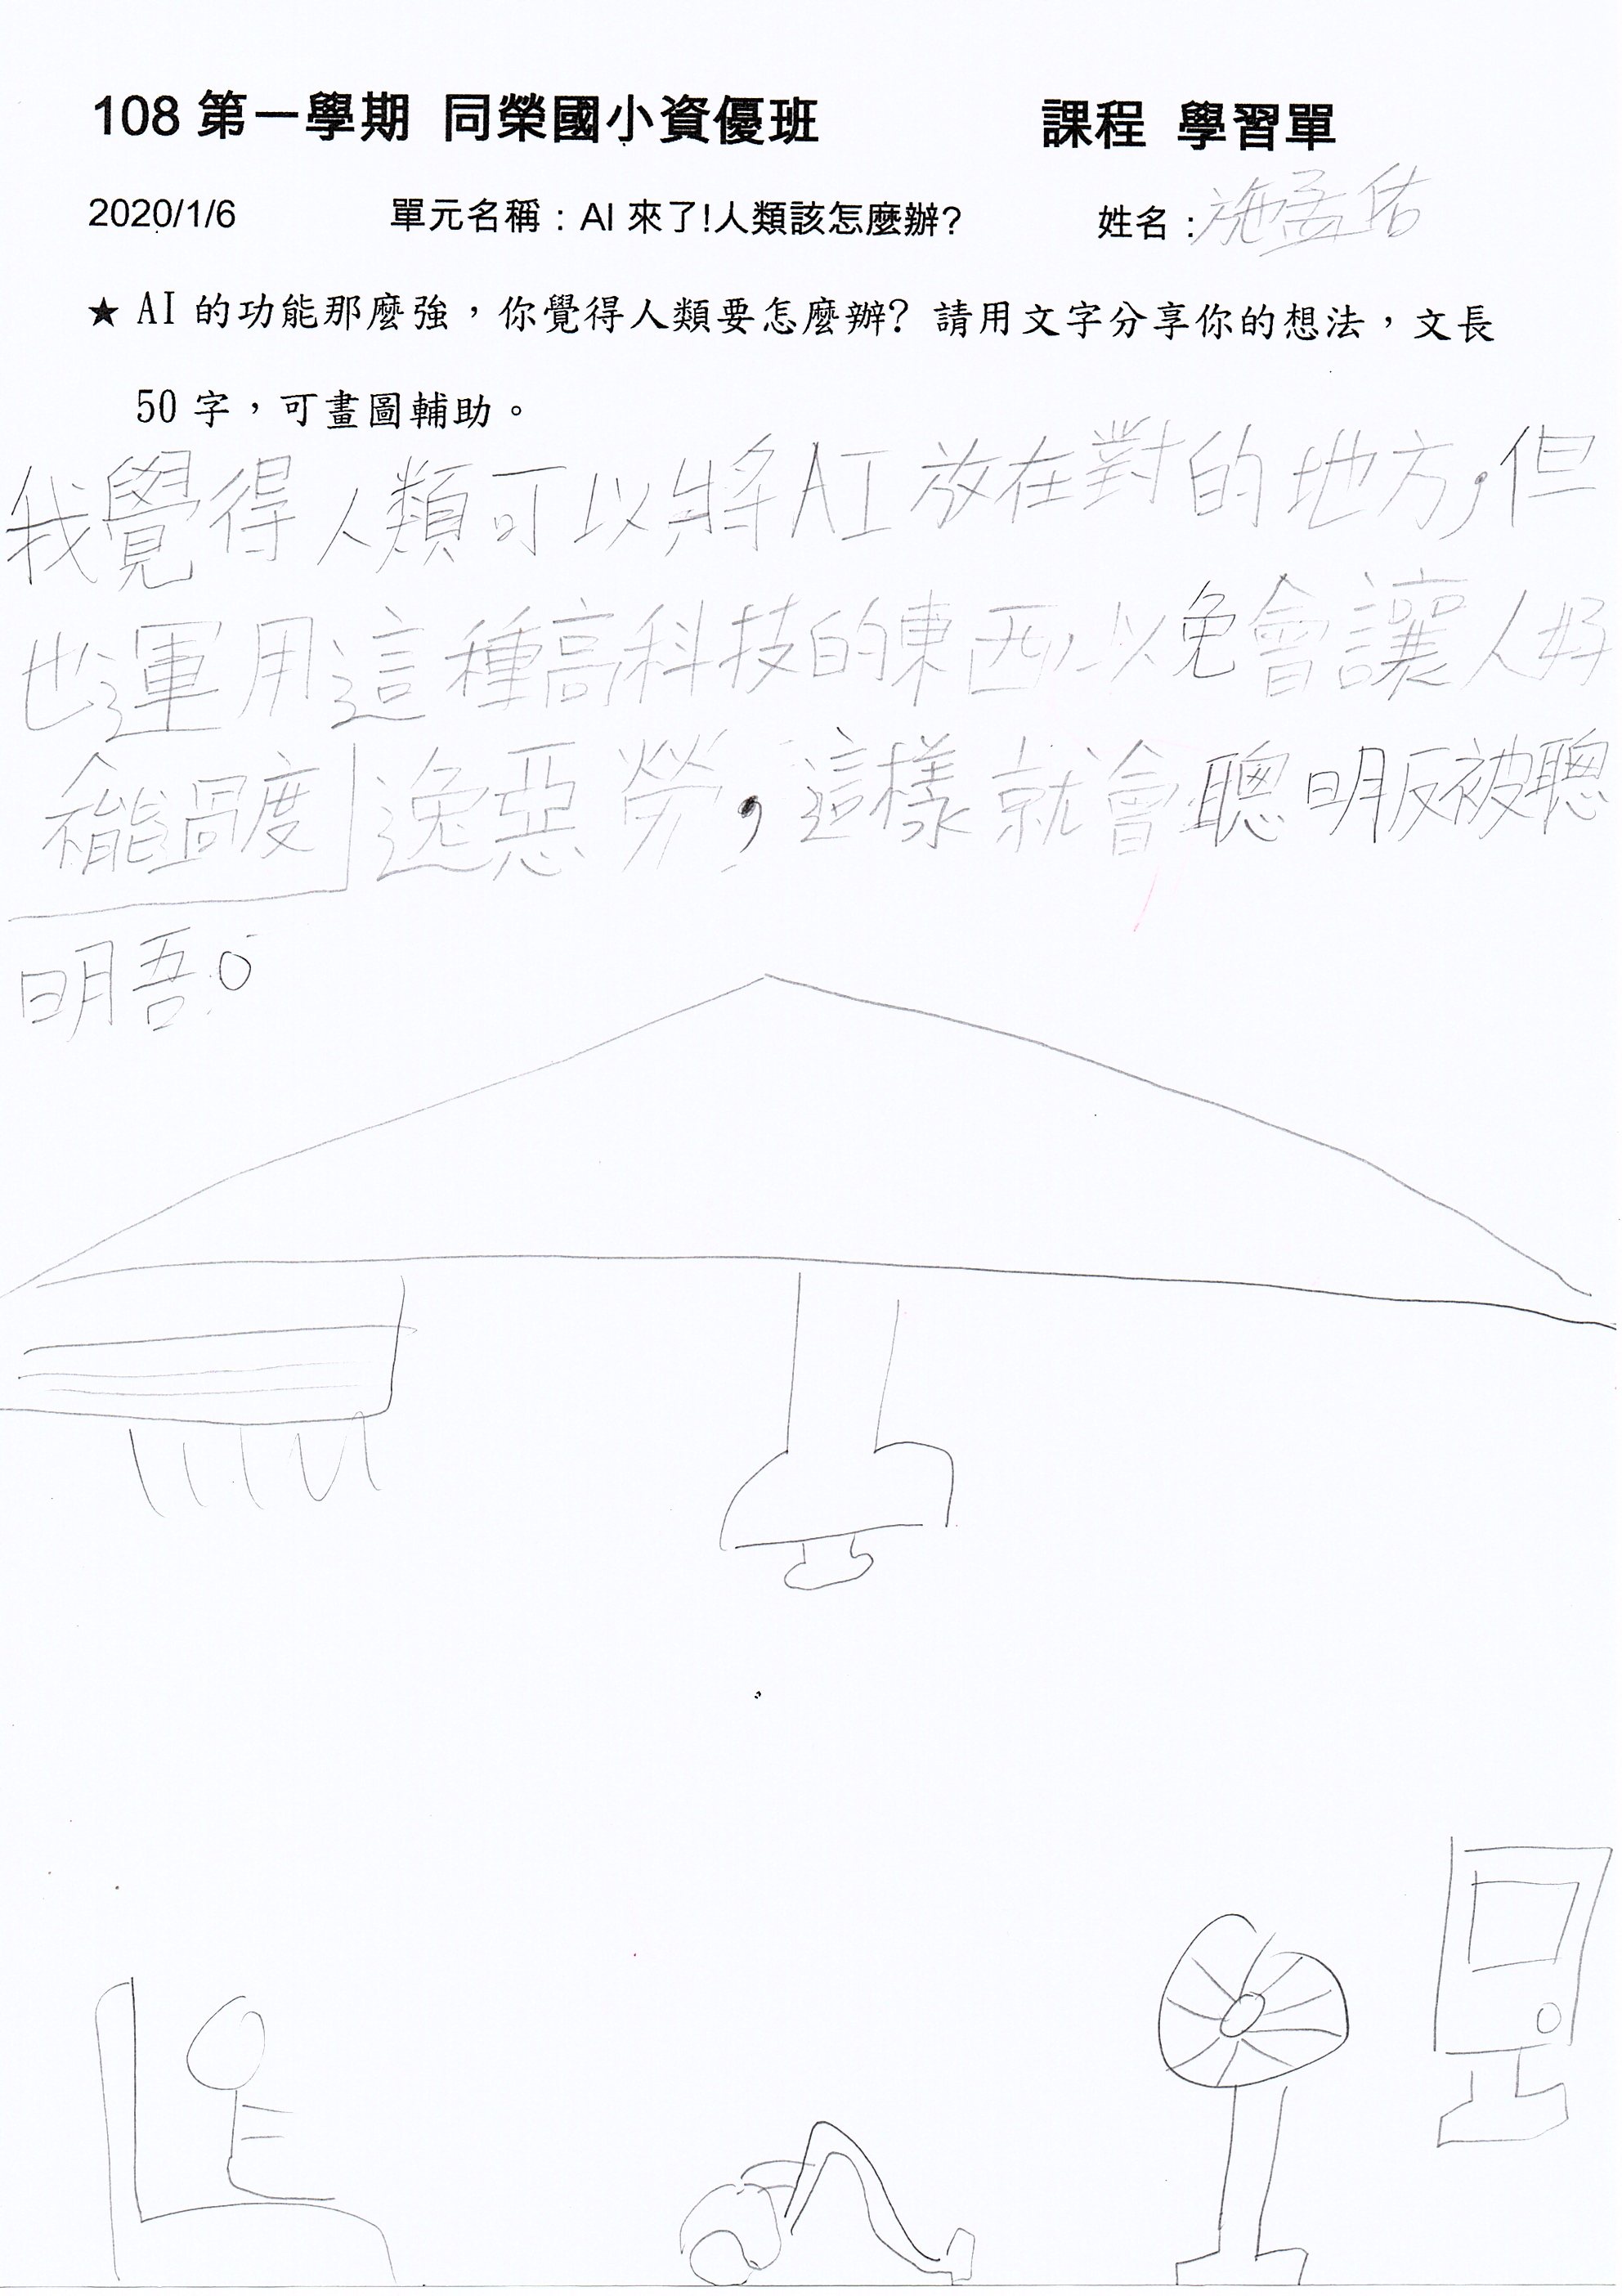 108 第一學期 同榮國小資優班 課程 學習單
2020/1/6 單元名稱：AI 來了!人類該怎麼辦? 姓名：施孟佑
★ AI 的功能那麼強，你覺得人類要怎麼辦? 請用文字分享你的想法，文長
50 字，可畫圖輔助。
我覺得人類可以將AI放在對的地方，但
也運用這種高科技的東西，以免會讓人好
不能過度 逸惡勞，這樣就會聰明反被聰
明吾。